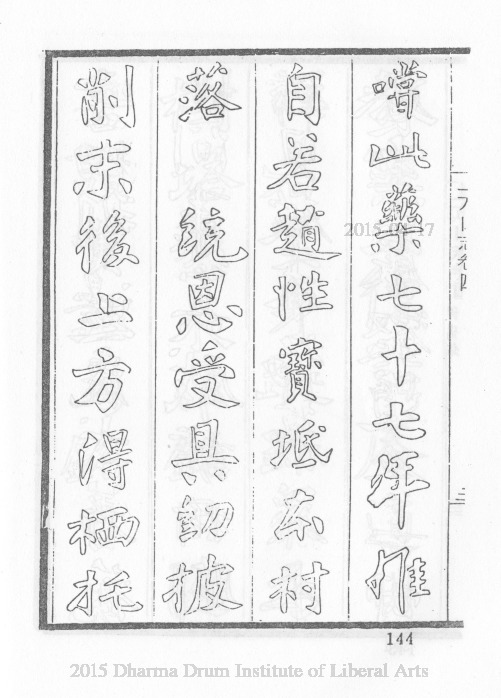 此藥七十七年惟
自若趙性寶坻本村
落 統恩受具幼披
削末後上方得栖托
三
144
2015 Dharma Drum Institute of Liberal Arts